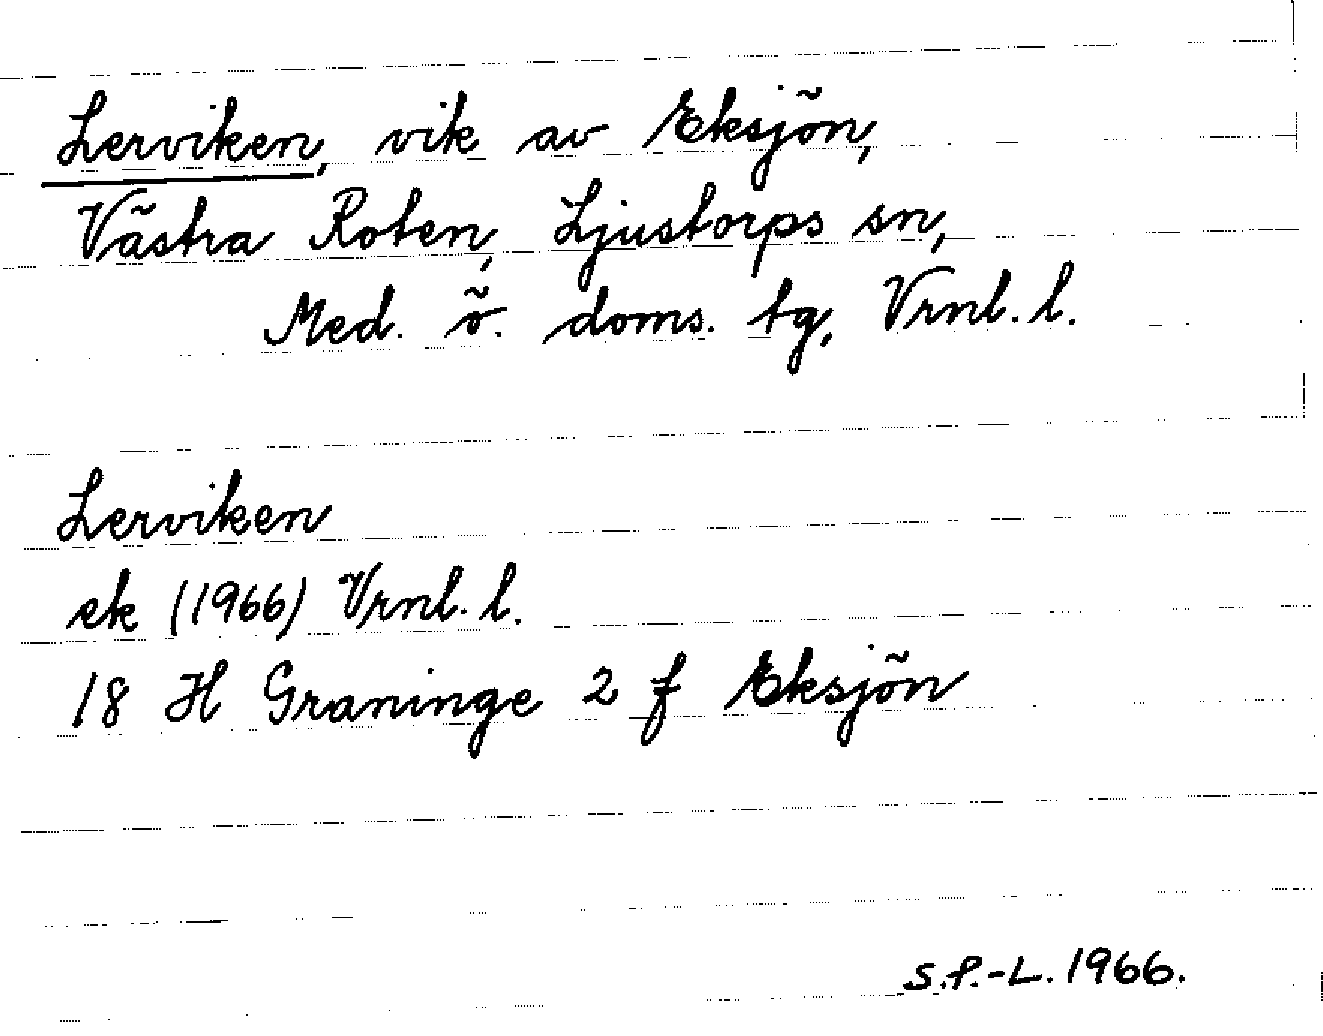 Lerviken, vik av Eksjön,
Västra Roten, Ljustorps sn,
Med. ö. doms. tg, Vrnl. l.
Lerviken
ek (1966) Vrnl. l.
18 H Graninge 2 f Eksjön
S.P.-L. 1966.